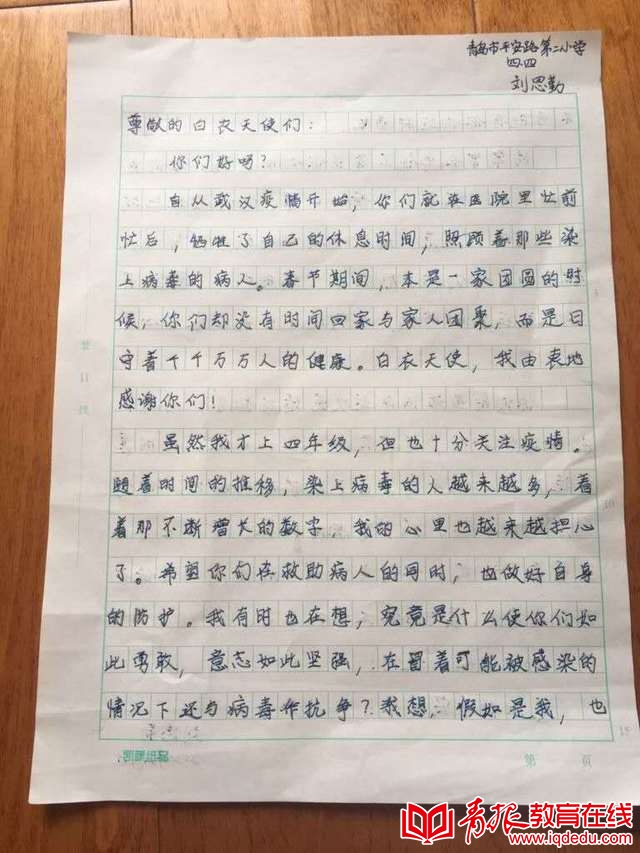 青岛市平安路第二小学
四.四
刘思勤
尊敬的白衣天使们：
你们好吗？
自从武汉疫情开始，你们就在医院里忙前
忙后，牺牲了自己的休息时间，照顾着那些染
上病毒的病人。春节期间，本是一家团圆的时
候，你们却没有时间回家与家人团聚，而是日
守着千千万万人的健康。白衣天使，我由衷地
感谢你们！
虽然我才上四年级，但也十分关注疫情。
随着时间的推移，染上病毒的人越来越多，看
着那不断增长的数字，我的心里也越来越担心
了。希望你们在救助病人的同时，也做好自身
的防护。我有时也在想，究竟是什么使你们如
此勇敢，意志如此坚强，在冒着可能被感染的
情况下还与病毒作抗争？我想，假如是我，也
第 页
青报教育在线
www.iqdedu.com